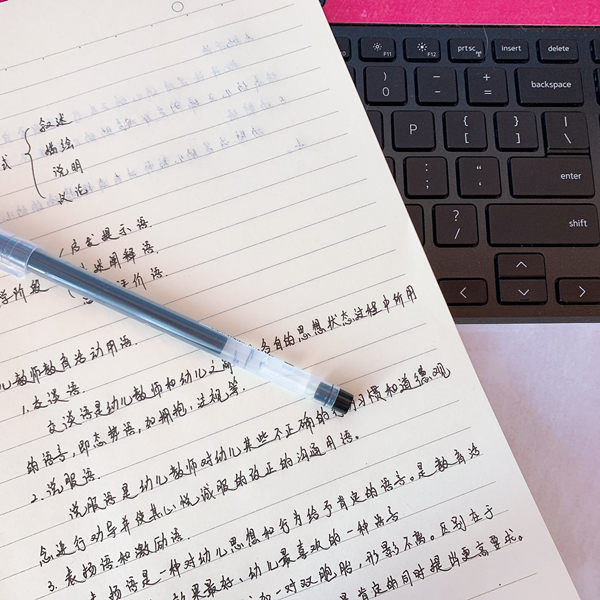 式
叙述
描绘
说明
议论
启发提示语
阐释语
评价语
学阶段
儿教师教育活动用语
1.交谈语
交谈语是幼儿教师和幼儿之
各自的思想状态过程中所用
的语言,即态势语,如拥抱,注视等.
2.说服语
说服语是幼儿教师对幼儿某些不正确的
习惯和道德观
念进行劝导并使其心悦诚服的改正的沟通用语。
3.表扬语和激励语
表扬语是一种对幼儿思想和行为给予肯定的语言。是教育活
效果最好、幼儿最喜欢的一种语言
一对双胞胎,形影不离。区别在于
是肯定的同时提出更高要求。
F11
F12
prtsc
insert
delete
)
0
_
-
+
=
backspace
P
{
[
}
]
|
\
:
;
"
'
enter
?
/
shift